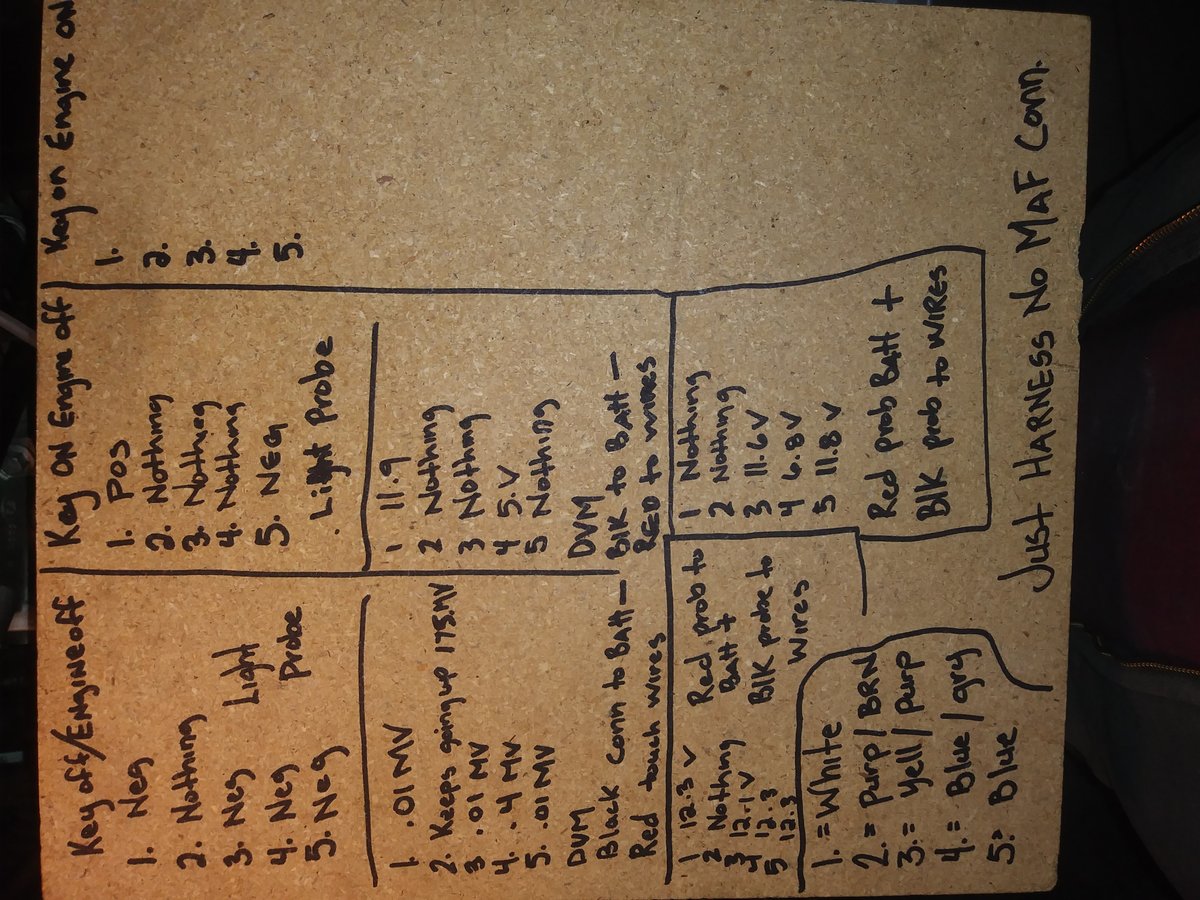 Key off/ENgine off
1. Neg
2. Nothing
3. Neg
4. Neg
5. Neg
Light
Probe
1. .01 MV
2. Keeps going up 175.MV
3 .01 MV
4. .4 MV
5. .01 MV
DVM
Black conn to BAtt-
Red touch wires
1 12.3 V
2 Nothing
3 12.1 V
4 12.3
5 12.3
Red prob to
Batt +
BlK probe to
wires
1. = White
2. = Purp/BRN
3. = yell/purp
4. = Blue/gry
5. = Blue
Key ON Engine off
1. POS
2. Nothing
3. Nothing
4. Nothing
5. NEg
. Light Probe
1 11.9
2 Nothing
3 Nothing
4 5.V
5 Nothing
DVM
BlK to BAtt -
RED to wires
1 Nothing
2 Nothing
3 11.6 V
4 6.8 V
5 11.8 V
Red prob BAtt +
BlK prob to WIRES
Key on Engine on
1.
2.
3.
4.
5.
Just HARNESS No MAF Conn.